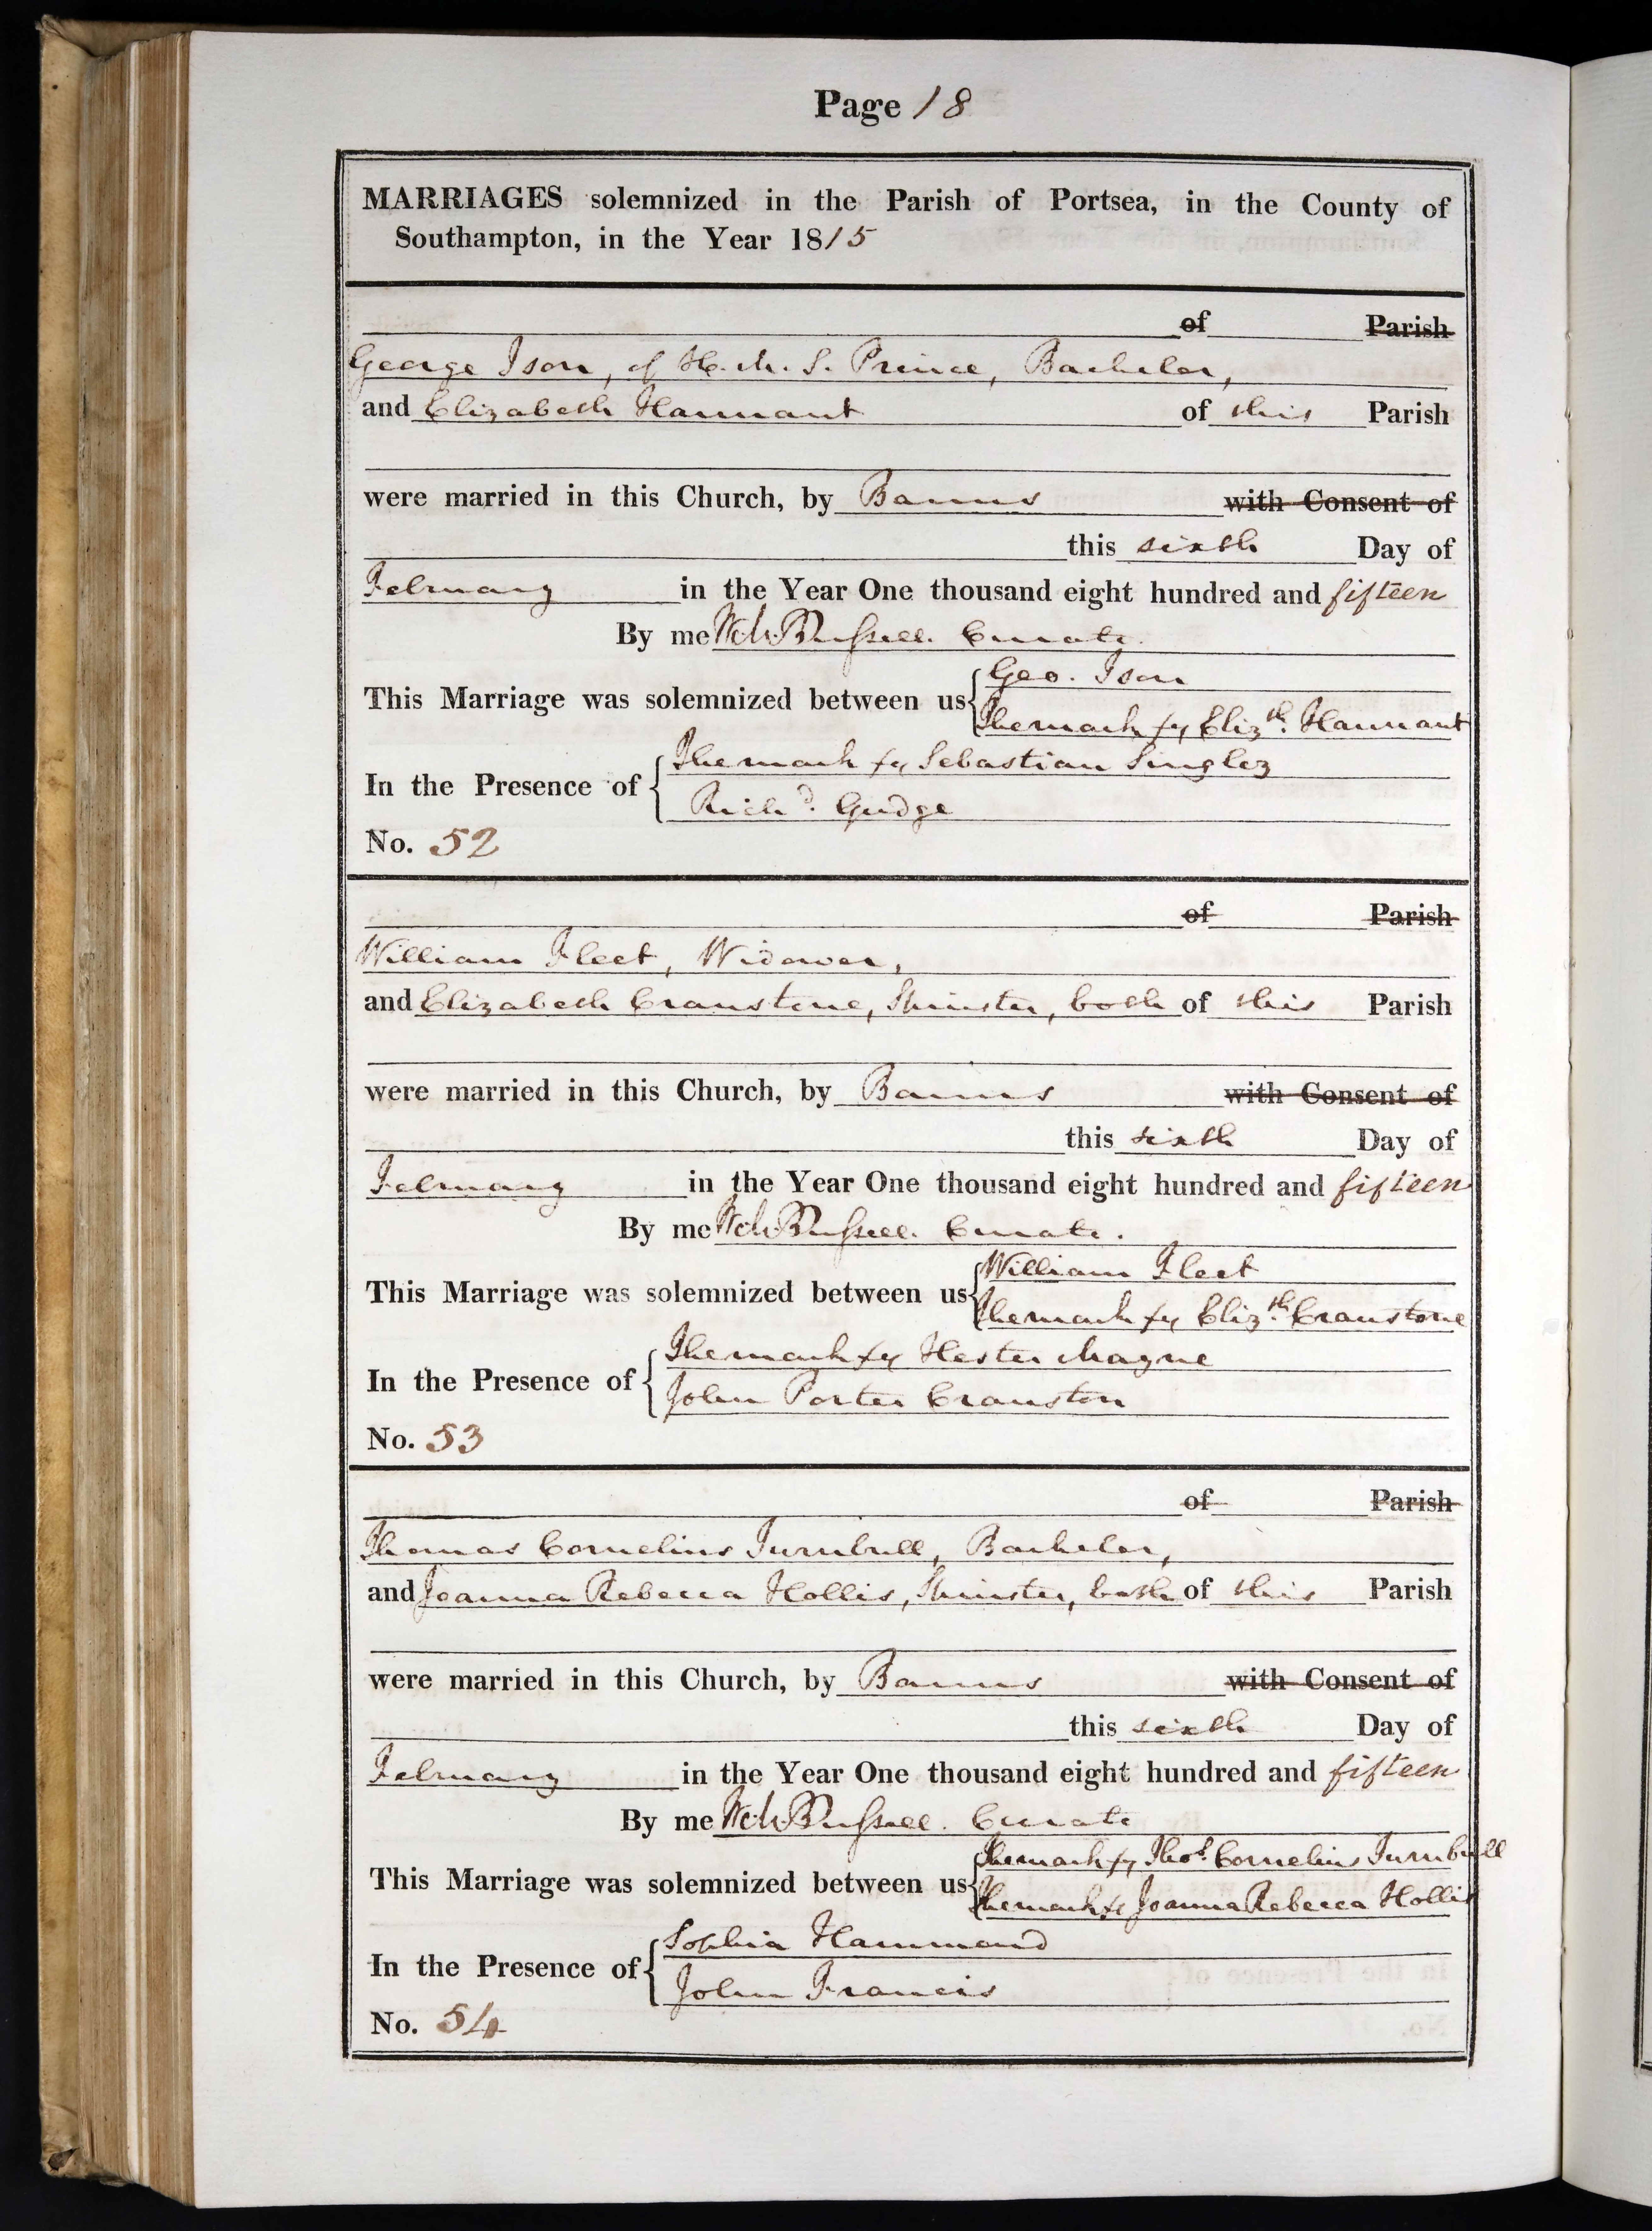 Page 18
MARRIAGES solemnized in the Parish of Portsea, in the County of
Southampton, in the Year 1815
of Parish
George Ison, of H. M. S. Prince, Bachelor,
and Elizabeth Hannant of this Parish
were married in this Church, by Banns with Consent of
this sixth Day of
February in the Year One thousand eight hundred and fifteen
By me Curate.
This Marriage was solemnized between us Geo. Ison
The mark of Elizth. Hannant
In the Presence of The mark of Sebastian
Richd. Gudge
No. 52
of Parish
William Fleet, Widower,
and Elizabeth Cranstone, Spinster, both of this Parish
were married in this Church, by Banns with Consent of
this sixth Day of
February in the Year One thousand eight hundred and fifteen
By me Curate.
This Marriage was solemnized between us William Fleet
The mark of Elizth. Cranstone
In the Presence of The mark of Hester Mayne
John Porter Cranston
No. 53
of Parish
Thomas Cornelius Turnbull, Bachelor,
and Joanna Rebecca Hollis, Spinster, both of this Parish
were married in this Church, by Banns with Consent of
this sixth Day of
February in the Year One thousand eight hundred and fifteen
By me Curate
This Marriage was solemnized between us The mark of Thos. Cornelius Turnbull
The mark of Joanna Rebecca Hollis
In the Presence of Sophia Hammond
John Francis
No. 54